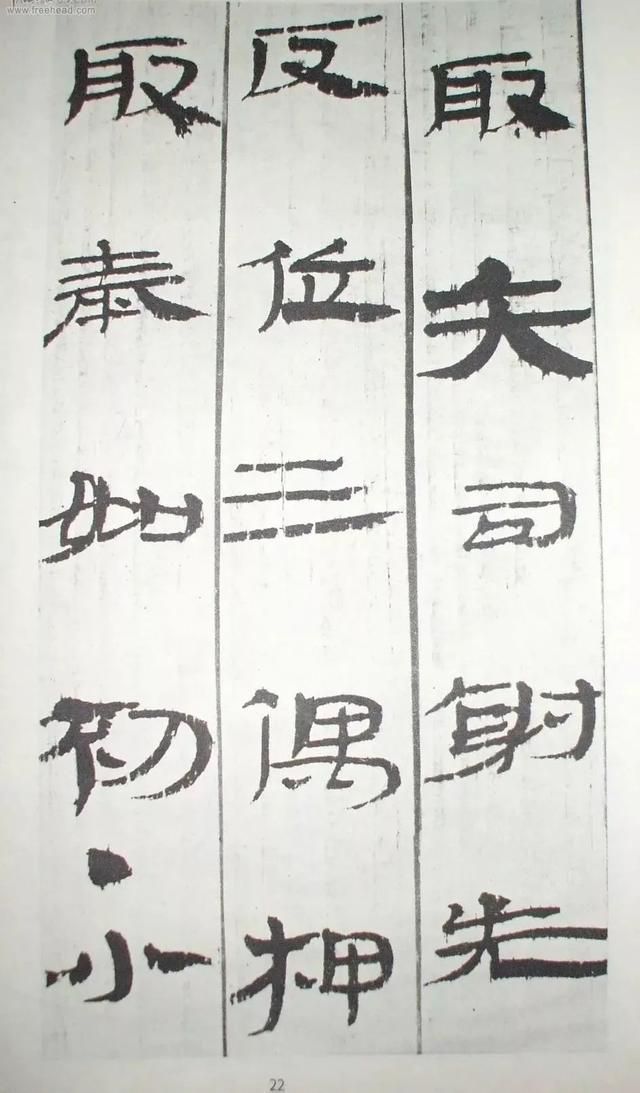 www.freehead.com
取矢司射先
反位三偶押
取如初·小
22